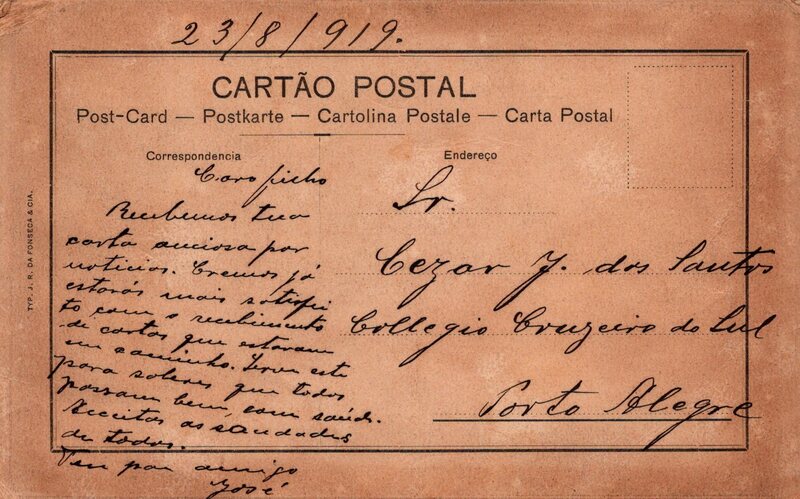 23/8/919.
CARTÃO POSTAL
Post-Card — Postkarte — Cartolina Postale — Carta Postal
Correspondencia
Caro filho
Recebemos tua
carta anciosa por
noticias. Cremos já
estarás mais satisfei
to com o recebimento
de cartas que estavam
em caminho. Serve este
para saberes que todos
passam bem, com saúde.
Acceitas as saudades
de todos.
Teu pae amigo
José
Endereço
Sr.
Cezar J. dos Santos
Collegio Cruzeiro do Sul
Porto Alegre
TYP. J. R. DA FONSECA & CIA.